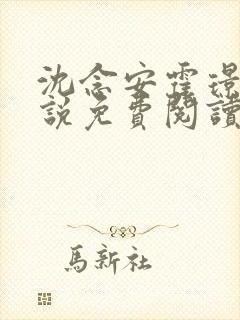 沈念安霆璟
說免費閱讀
馬新社